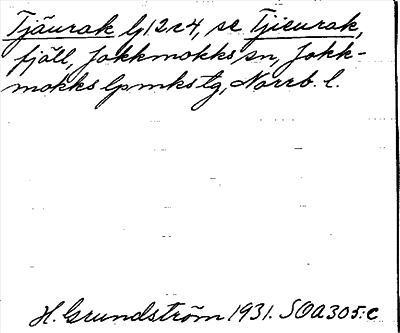 Tjäurak lj12c4, se Tjieurak,
fjäll, Jokkmokks sn, Jokk-
mokks lpmks tg, Norrb. l.
H. Grundström 1931. SOA305:c